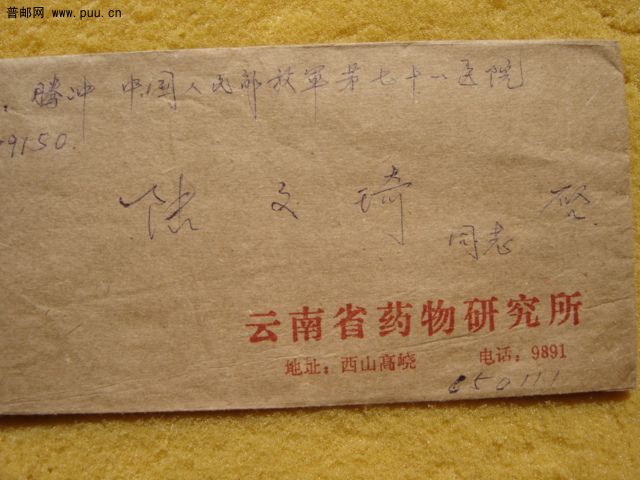 普邮网 www.puu.cn
: 腾冲 中国人民解放軍第七十一医院
9150.
陆文琦 启
同志
云南省药物研究所
地址：西山高峣 电话：9891
650111